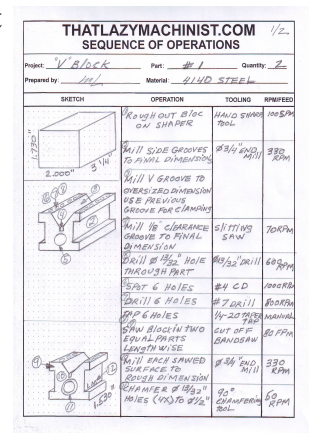 THATLAZYMACHINIST.COM 1/2
SEQUENCE OF OPERATIONS
Project: "V" Block Part: #1 Quantity: 2
Prepared by: Material: 4140 STEEL
SKETCH OPERATION TOOLING RPM/FEED
1.730"
2.000"
3 1/4"
① ROUGH OUT BLOC ON SHAPER HAND SHARP TOOL 100SPM
② Mill SIDE GROOVES TO FINAL DIMENSION Ø3/4" END Mill 330 RPM
③ Mill V GROOVE TO OVERSIZED DIMENSION USE PREVIOUS GROOVE FOR CLAMPING
④ Mill 1/8" CLEARANCE GROOVE TO FINAL DIMENSION SLITTING SAW 70RPM
⑤ Drill Ø 13/32" HOLE THROUGH PART Ø13/32" DRILL 600 RPM
⑥ SPOT 6 HOLES #4 CD 1000RPM
⑦ Drill 6 HOLES #7 Drill 800RPM
TAP 6 HOLES 1/4-20 TAPER TAP MANUAL
SAW BLOCK IN TWO EQUAL PARTS LENGTH WISE CUT OFF BANDSAW 80 FPM
Mill EACH SAWED SURFACE TO ROUGH DIMENSION Ø 3/4" END Mill 330 RPM
CHAMFER Ø 13/32" HOLES (4X) TO Ø1/2" 90° CHAMFERING TOOL 60 RPM
1.530